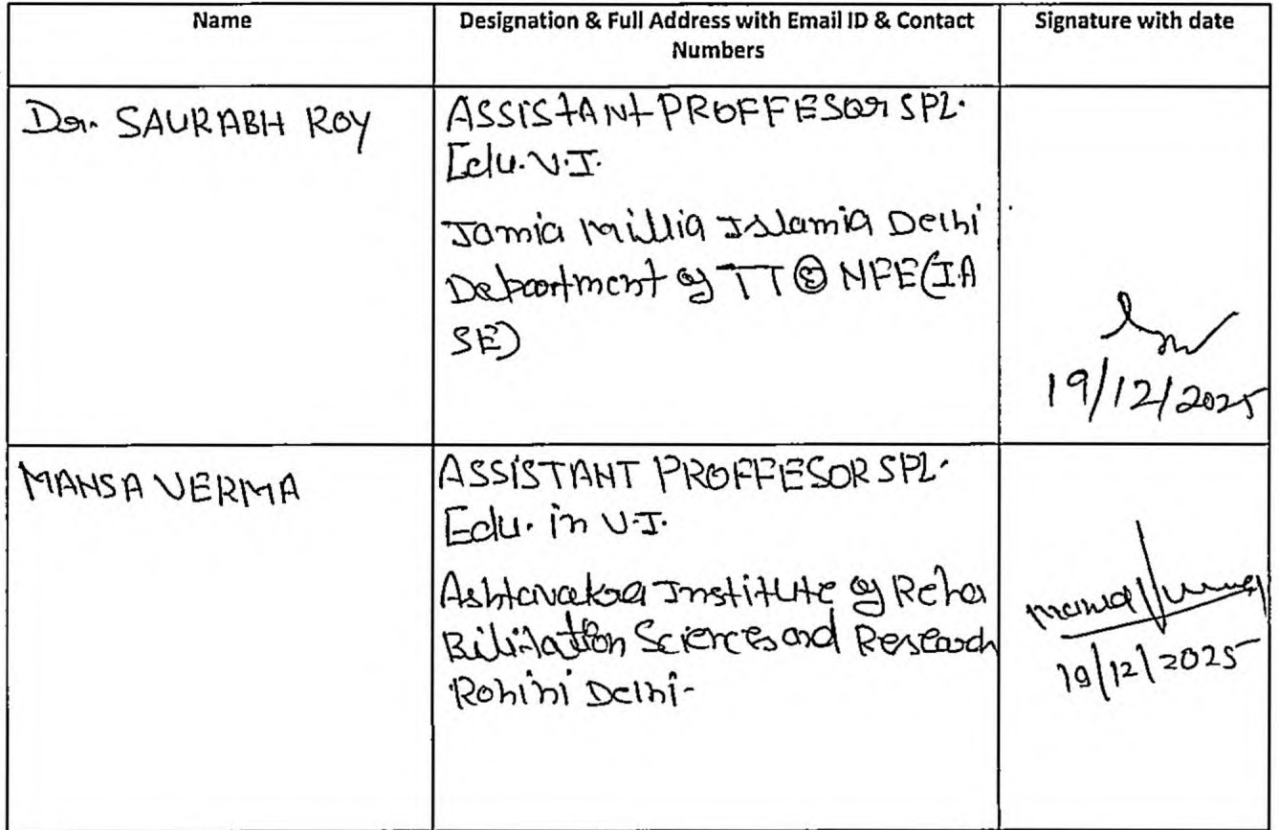 Name
Designation & Full Address with Email ID & Contact
Numbers
Signature with date
Dr. SAURABH ROY
ASSISTANT PROFFESOR SPL.
Edu. V.I.
Jamia Millia Islamia Delhi
Department of TT & NFE (IA
SE)
19/12/2025
MANSA VERMA
ASSISTANT PROFFESOR SPL.
Edu. in V.I.
Ashtavakra Institute of Reha
Bilitation Sciences and Research
Rohini Delhi-
19/12/2025